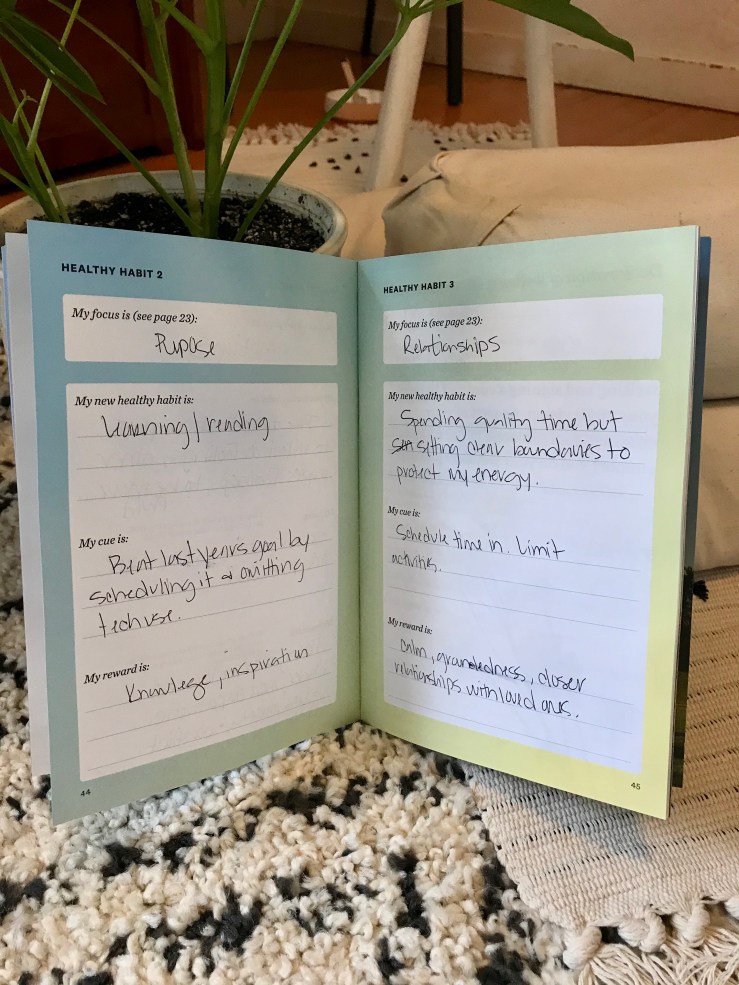 HEALTHY HABIT 2
My focus is (see page 23):
Pupose
My new healthy habit is:
Learning / reading
My cue is:
Beat last years goal by
scheduling it & omitting
tech use.
My reward is:
Knowlege, inspiration
44
HEALTHY HABIT 3
My focus is (see page 23):
Relationships
My new healthy habit is:
Spending quality time but
setting clear boundaries to
protect my energy.
My cue is:
Schedule time in. Limit
activities.
My reward is:
Calm, groundedness, closer
relationships with loved ones.
45